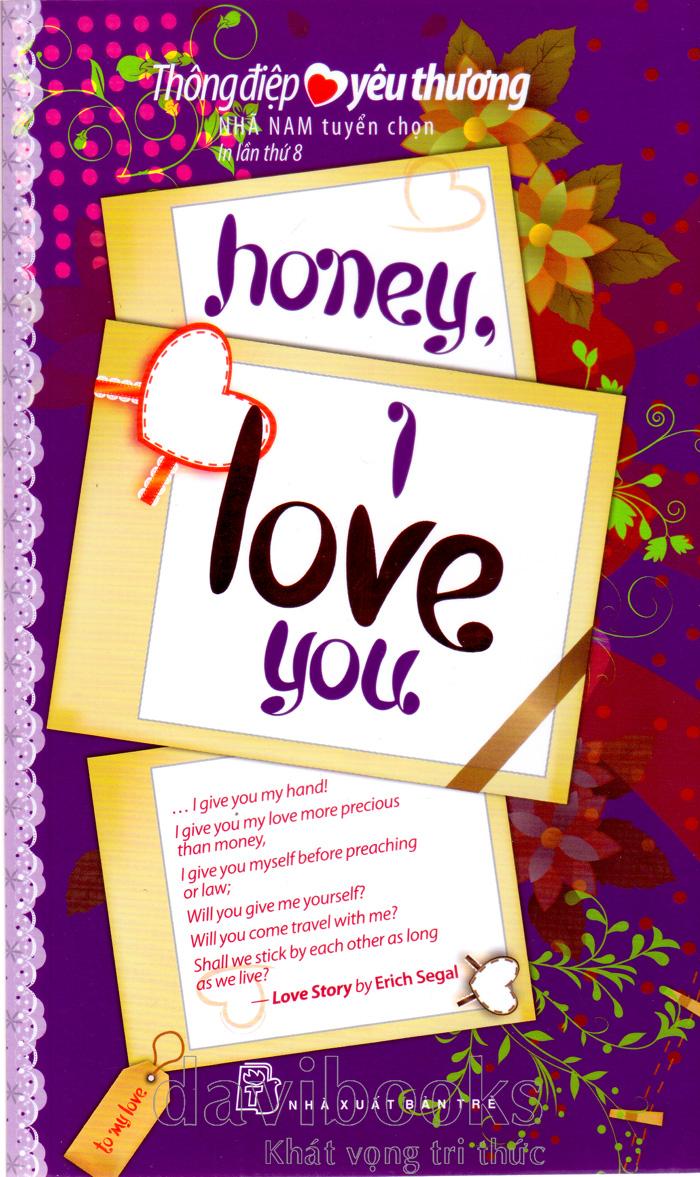 Thông điệp yêu thương
NHÃ NAM tuyển chọn
In lần thứ 8
honey,
i
love
you
... I give you my hand!
I give you my love more precious
than money,
I give you myself before preaching
or law;
Will you give me yourself?
Will you come travel with me?
Shall we stick by each other as long
as we live?
— Love Story by Erich Segal
to my love
NHÀ XUẤT BẢN TRẺ
davibooks
Khát vọng tri thức